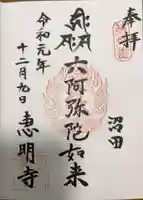 奉拝
沼田
六阿弥陀如来
令和元年
十二月九日
惠明寺